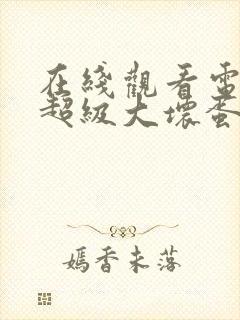 在綫觀看電
超級大壞蛋
嫣香未落